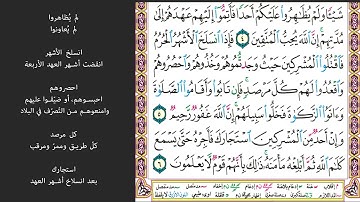 شَيْـًٔا وَلَمْ يُظَٰهِرُوا۟ عَلَيْكُمْ أَحَدًا فَأَتِمُّوٓا۟ إِلَيْهِمْ عَهْدَهُمْ إِلَىٰ
مُدَّتِهِمْ إِنَّ ٱللَّهَ يُحِبُّ ٱلْمُتَّقِينَ ٤ فَإِذَا ٱنسَلَخَ ٱلْأَشْهُرُ ٱلْحُرُمُ
فَٱقْتُلُوا۟ ٱلْمُشْرِكِينَ حَيْثُ وَجَدتُّمُوهُمْ وَخُذُوهُمْ وَٱحْصُرُوهُمْ
وَٱقْعُدُوا۟ لَهُمْ كُلَّ مَرْصَدٍ فَإِن تَابُوا۟ وَأَقَامُوا۟ ٱلصَّلَوٰةَ
وَءَاتَوُا۟ ٱلزَّكَوٰةَ فَخَلُّوا۟ سَبِيلَهُمْ إِنَّ ٱللَّهَ غَفُورٌ رَّحِيمٌ ٥
وَإِنْ أَحَدٌ مِّنَ ٱلْمُشْرِكِينَ ٱسْتَجَارَكَ فَأَجِرْهُ حَتَّىٰ يَسْمَعَ
كَلَٰمَ ٱللَّهِ ثُمَّ أَبْلِغْهُ مَأْمَنَهُۥ ذَٰلِكَ بِأَنَّهُمْ قَوْمٌ لَّا يَعْلَمُونَ ٦
لم يُظاهروا
لم يُعاونوا
انسلخ الأشهر
انقضت أشهر العهد الأربعة
احصروهم
احبسوهم، أو ضيّقوا عليهم
وامنعوهم من التّصرّف في البلاد
كل مرصد
كلّ طريق وممرّ ومرقب
استجارك
بعد انسلاخ أشهر العهد